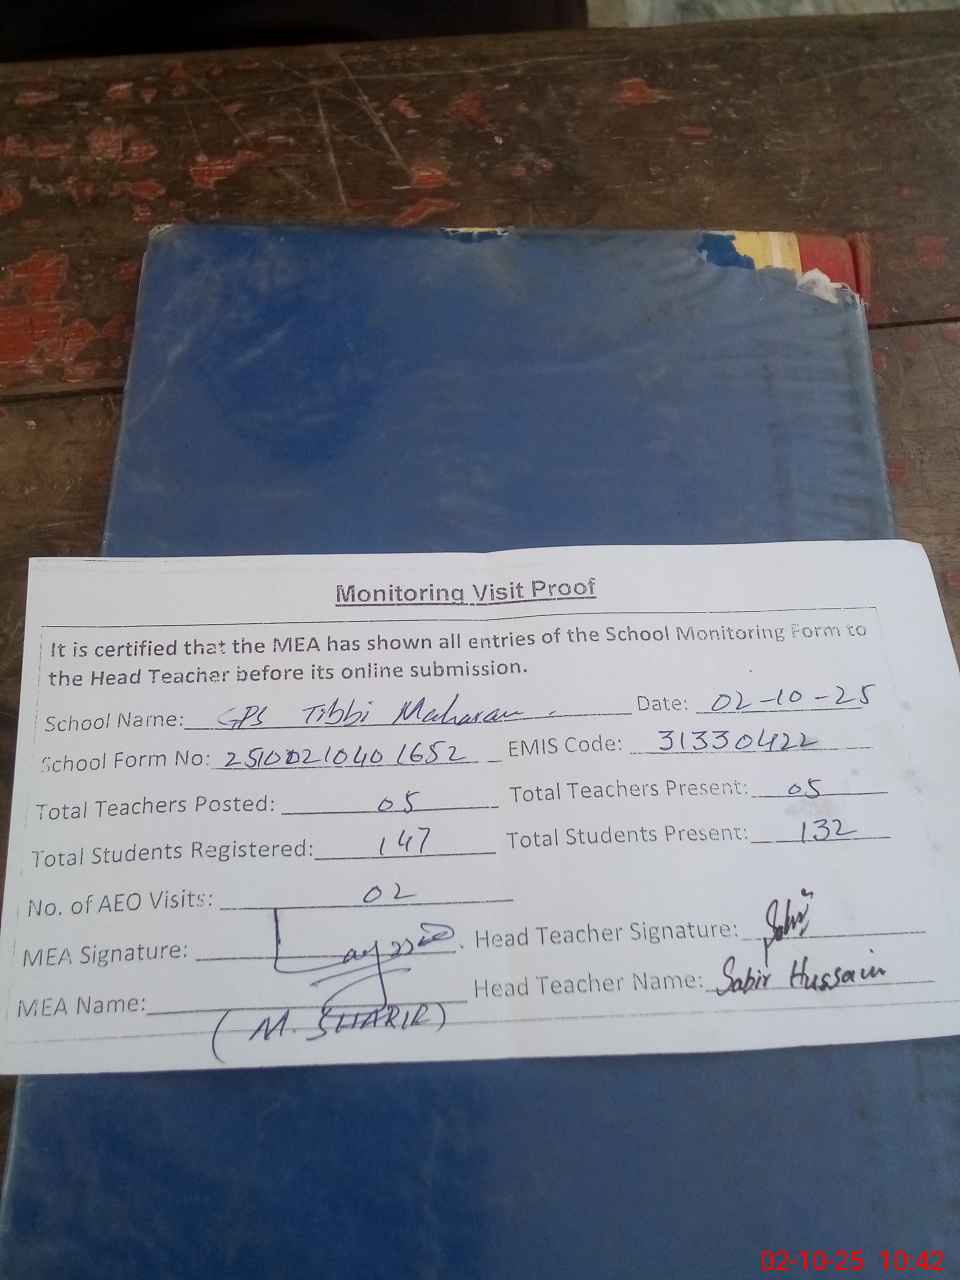 Monitoring Visit Proof
It is certified that the MEA has shown all entries of the School Monitoring Form to
the Head Teacher before its online submission.
School Name: GPS Tibbi Maharan Date: 02-10-25
School Form No: 25100210401652 EMIS Code: 31330422
Total Teachers Posted: 05 Total Teachers Present: 05
Total Students Registered: 147 Total Students Present: 132
No. of AEO Visits: 02
MEA Signature: Head Teacher Signature: Sabir
MEA Name: Head Teacher Name: Sabir Hussain
(M. SHARIF)
02-10-25 10:42